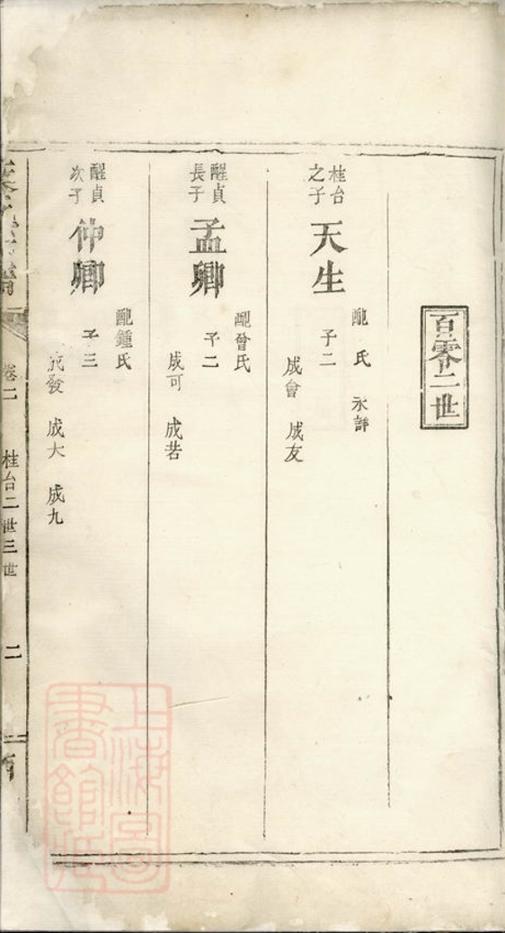 百零二世
桂台之子
天生
配 氏 永諱
子二
成會 成友
醒貞長子
孟卿
配曾氏
子二
成可 成若
醒貞次子
仲卿
配鍾氏
子三
成發 成大 成九
卷二 桂台二世三世 二
上海圖書館藏